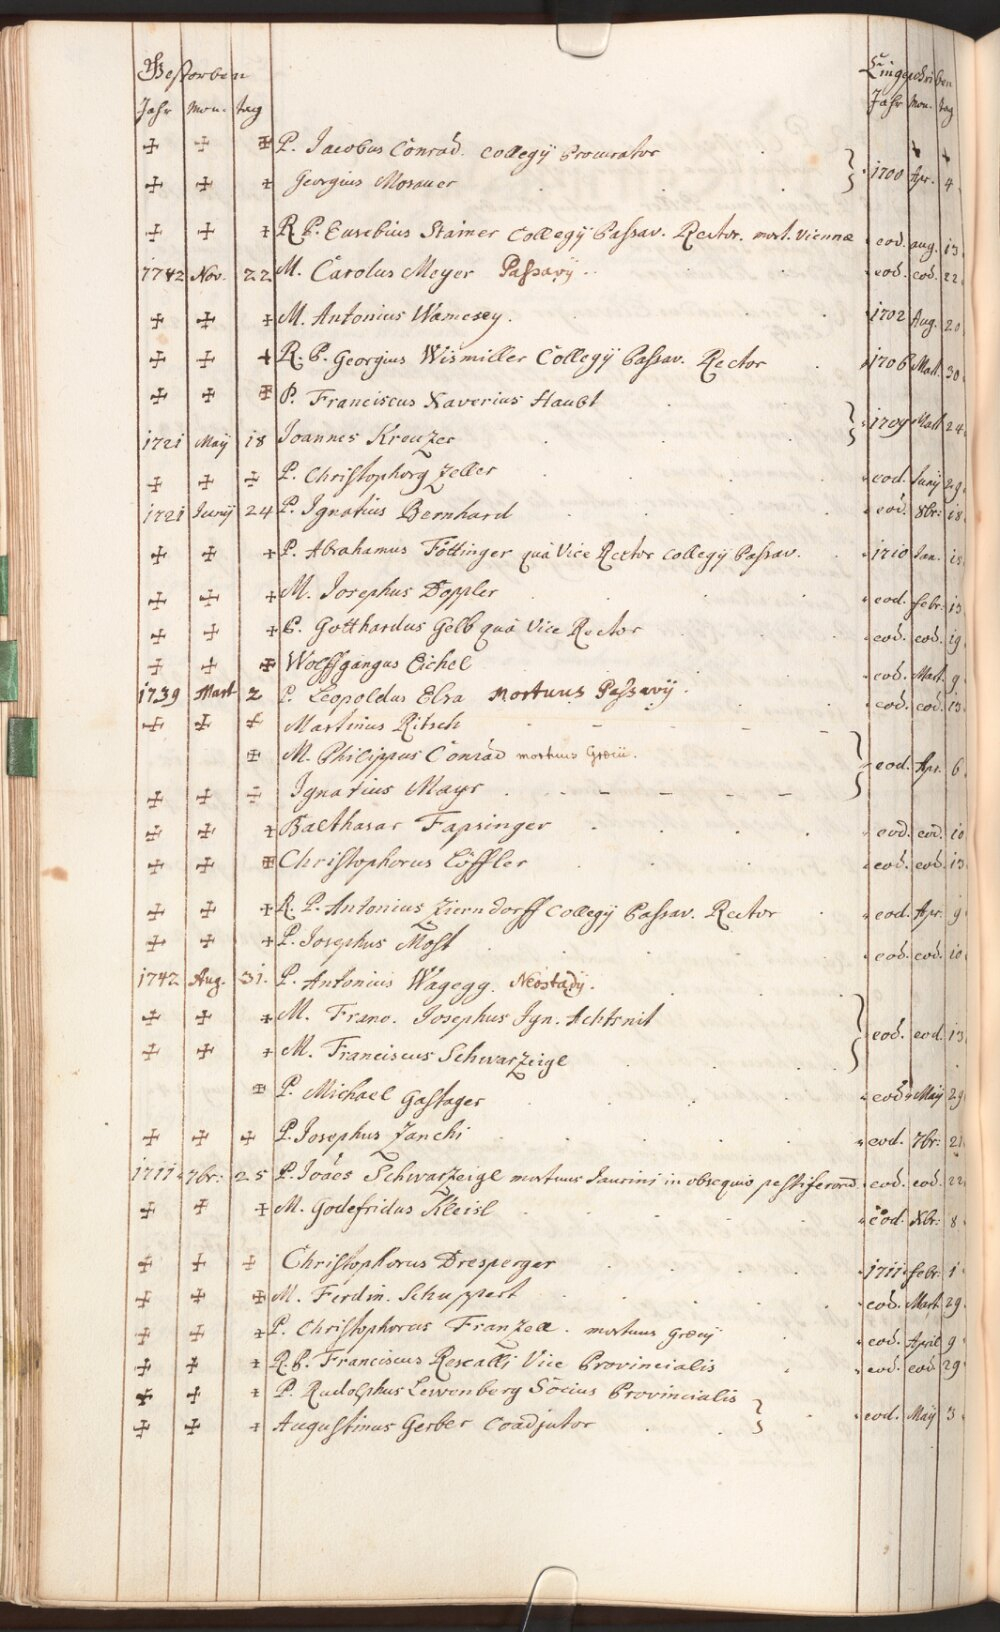 Gestorben Eingeschriben
Jahr Mon. tag Jahr Mon. tag
✠ ✠ ✠ P. Jacobus Conrad. Collegij Procurator
✠ ✠ ✠ Georgius Mosauer } 1700 Apr. 4
✠ ✠ ✠ R. P. Eusebius Stainer Collegij Passav. Rector. mort. Viennæ eod. aug. 13
1742 Nov. 22 M. Carolus Meyer Passavij. eod. eod. 22
✠ ✠ ✠ M. Antonius Wamesey. 1702 Aug. 20
✠ ✠ ✠ R. P. Georgius Wismiller Collegij Passav. Rector 1706 Mart. 30
✠ ✠ ✠ P. Franciscus Xaverius Haubt
1721 Maij 18 Joannes Kreuzer } 1709 Mart 24
✠ ✠ ✠ P. Christophorg Zeller eod. Junij 29
1721 Junij 24 P. Ignatius Bernhard eod. 8br: 18
✠ ✠ ✠ P. Abrahamus Föttinger quà Vice Rector collegij Passav. 1710 Jan. 15
✠ ✠ ✠ M. Josephus Doppler eod. febr: 13
✠ ✠ ✠ P. Gotthardus Gelb quà Vice Rector eod. eod. 19
✠ ✠ ✠ Wolffgangus Eichel eod. Mart. 9
1739 Mart 2 P. Leopoldus Elra Mortuus Passavij. eod. eod. 13
✠ ✠ ✠ Martinus Ritsch
✠ M. Philippus Conrad mortuus Græcii. } eod. Apr. 6
✠ ✠ ✠ Ignatius Mayr
✠ ✠ ✠ Balthasar Fapsinger eod. eod. 10
✠ ✠ ✠ Christophorus Löffler eod. eod. 13
✠ ✠ ✠ R. P. Antonius Zierndorff Collegij Passav. Rector eod. Apr. 9
✠ ✠ ✠ P. Josephus Most eod. eod. 10
1742 Aug. 31. P. Antonius Wagegg. Neostadij.
✠ ✠ ✠ M. Franc. Josephus Ign. Achtsnit } eod. eod. 13
✠ ✠ ✠ M. Franciscus Schwarzeigl
✠ P. Michael Gastager eod. Maij 29
✠ ✠ ✠ P. Josephus Zanchi eod. 7br: 21
1711 7br: 25 P. Joães Schwarzeigl mortuus Jaurini in obsequio pestiferorū eod. eod. 22
✠ ✠ ✠ M. Godefridus Kleisl eod. Xbr: 8
✠ ✠ ✠ Christophorus Dresperger 1711 febr: 1
✠ ✠ ✠ M. Ferdin. Schuppert eod. Mart. 29
✠ ✠ ✠ P. Christophorus Franzell. mortuus Græcij eod. April 9
✠ ✠ ✠ R. P. Franciscus Rescalli Vice Provincialis eod. eod 29
✠ ✠ ✠ P. Rudolphus Lewenberg Socius Provincialis
✠ ✠ ✠ Augustinus Gerber Coadjutor } eod. Maij 3